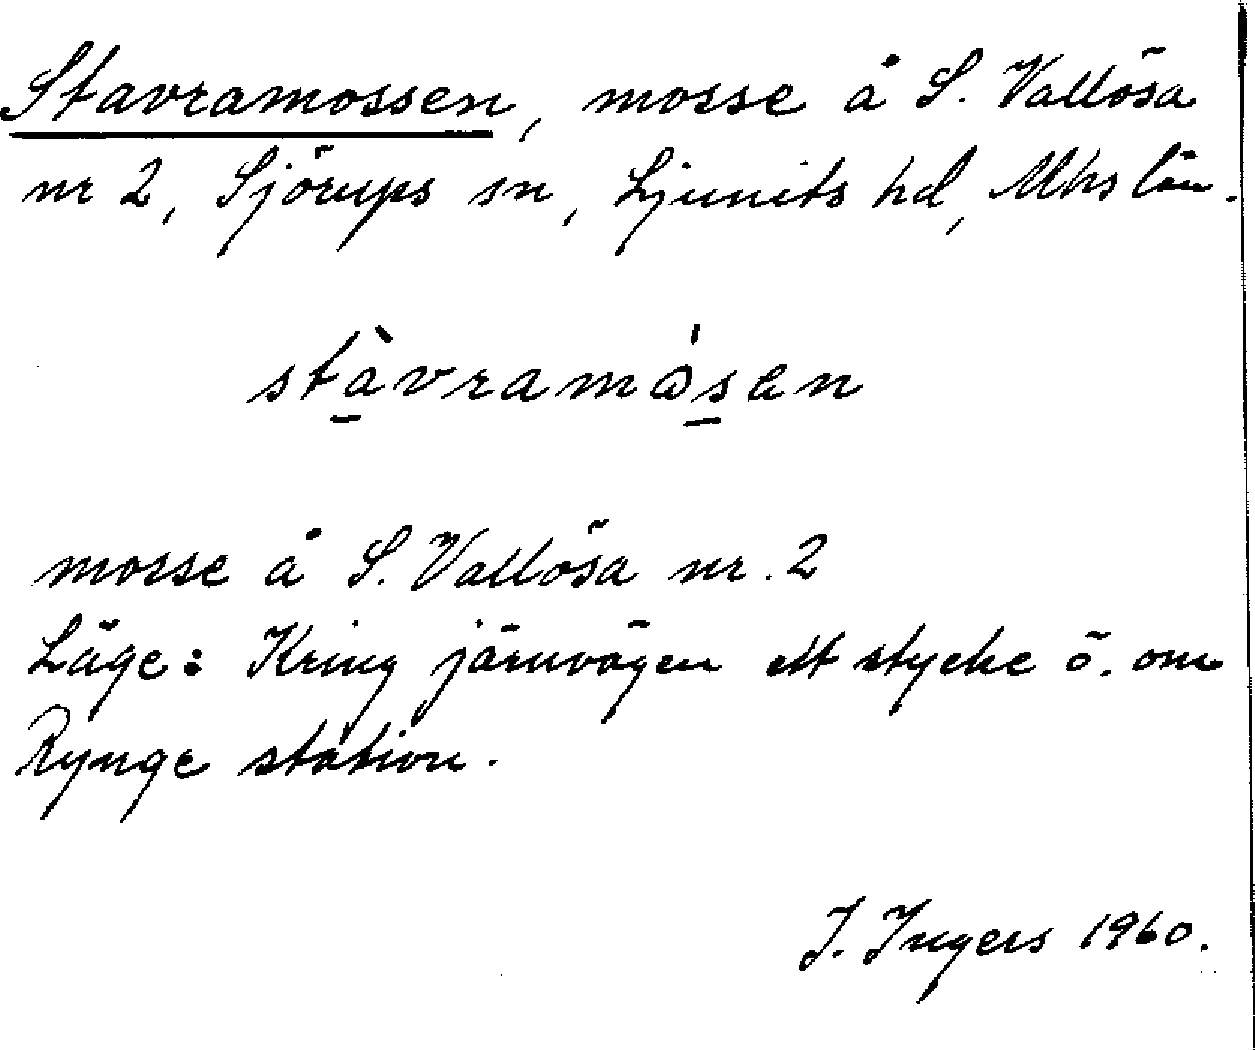 Stavramossen, mosse å S. Vallösa
nr 2, Sjörups sn, Ljunits hd, Mhs län.
stà̠vramɷ́s̠en
mosse å S. Vallösa nr. 2
Läge: Kring järnvägen ett stycke ö. om
Rynge station.
I. Ingers 1960.